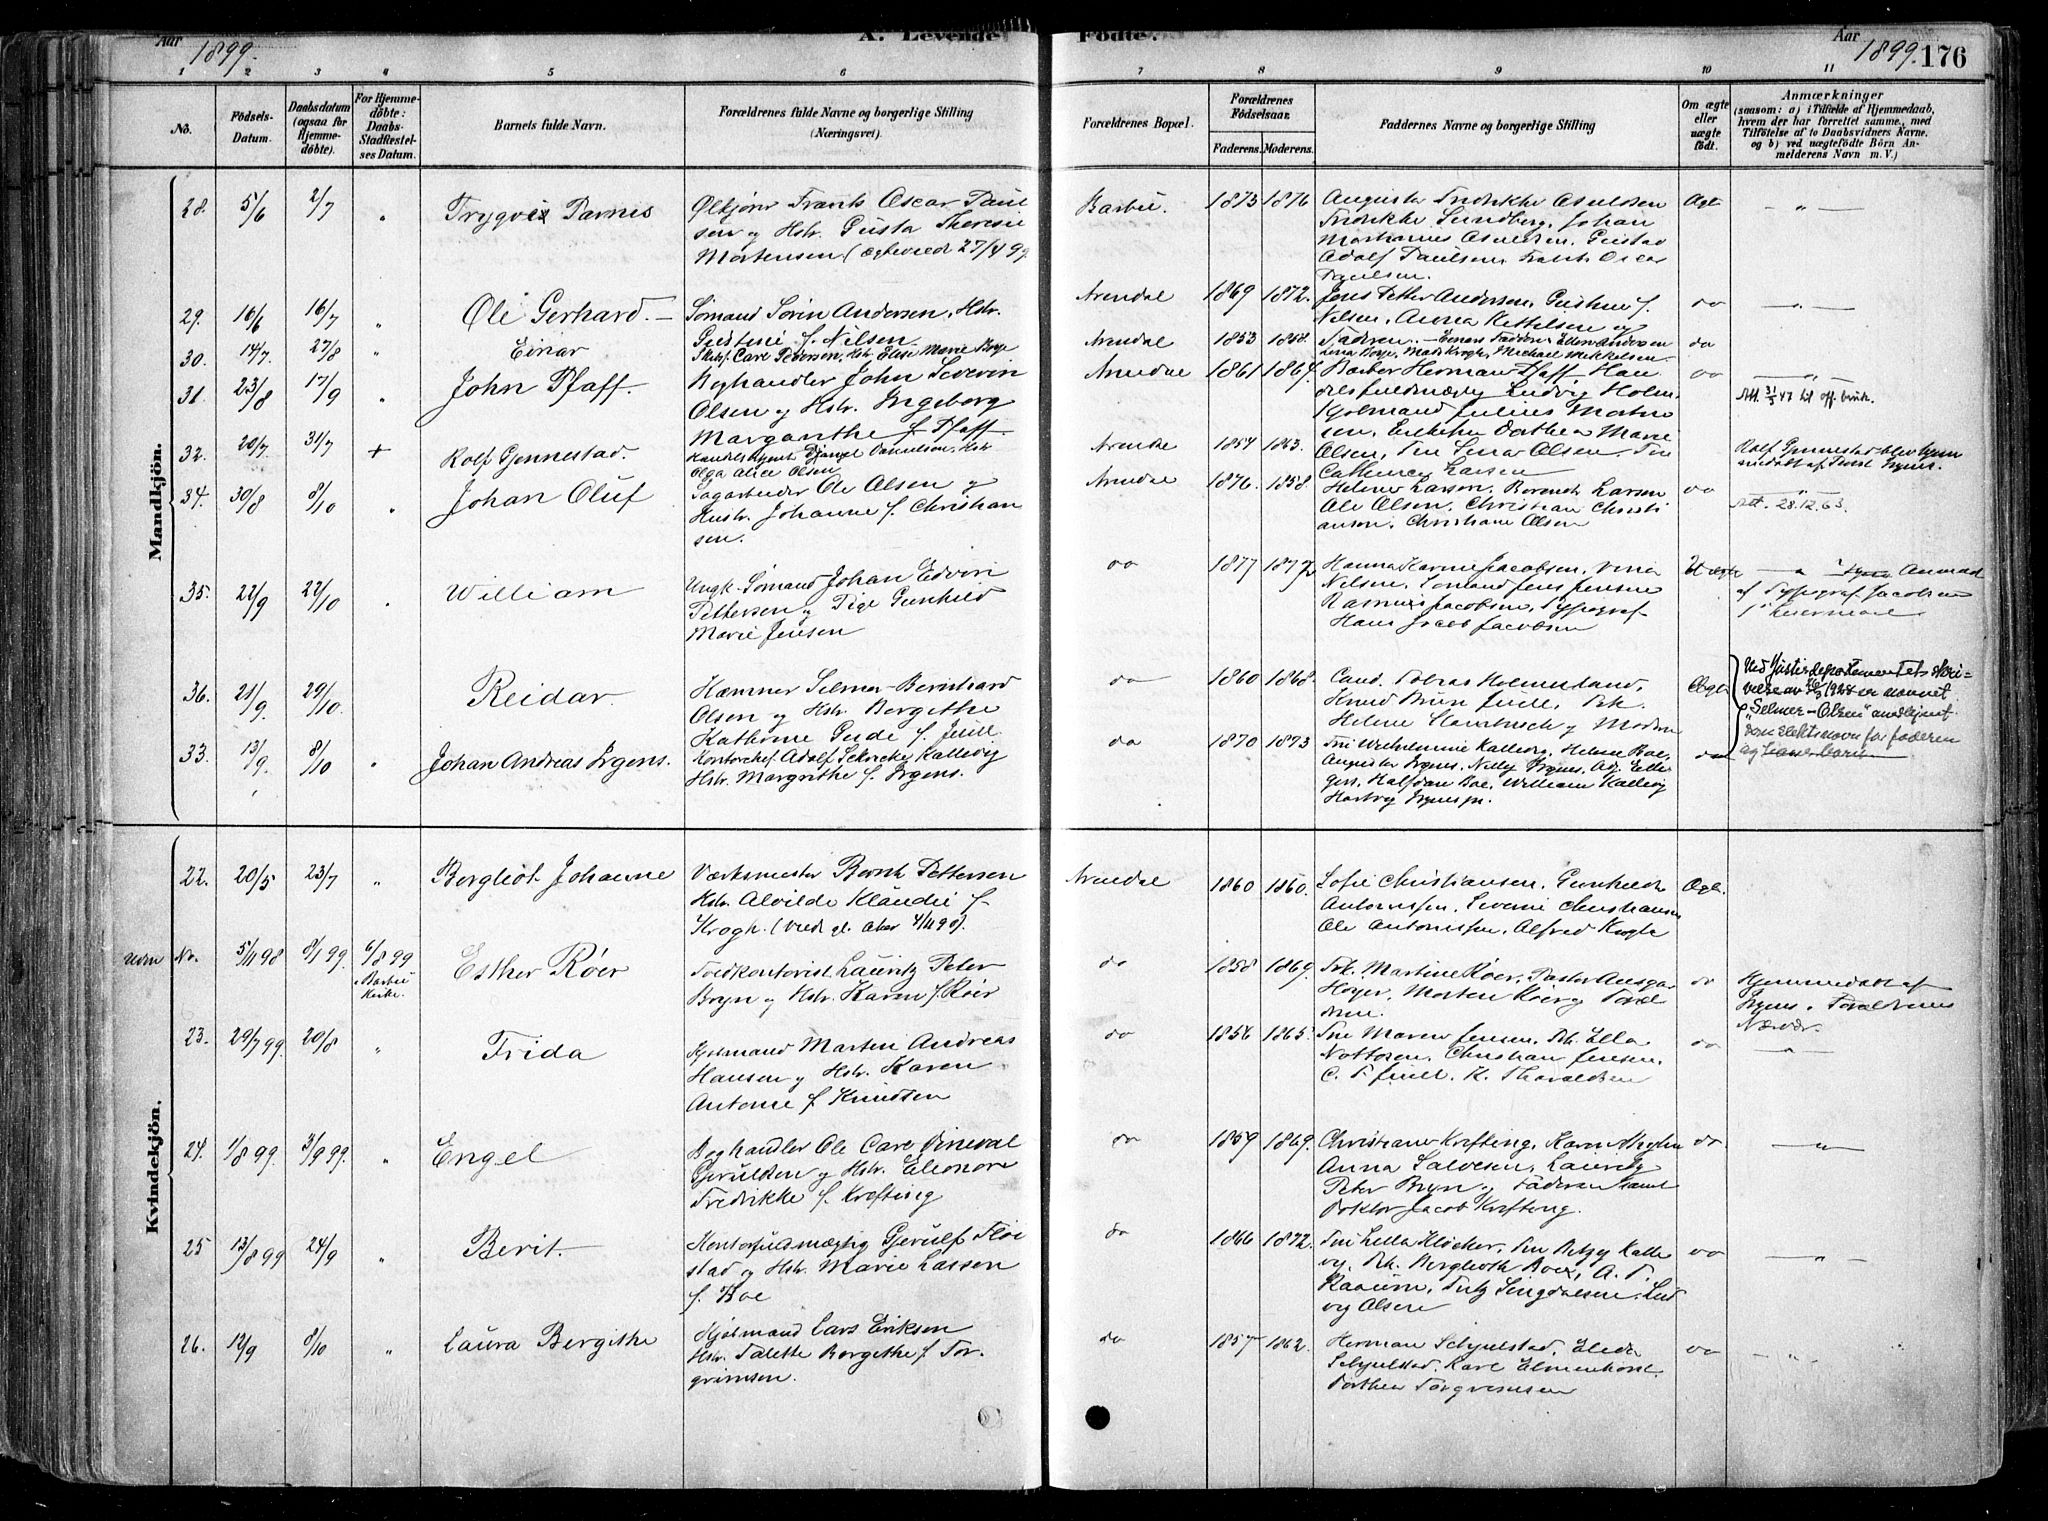 Aar 1899.
A. Levende Fødte.
Aar 1899. 176
1 2 3 4 5 6 7 8 9 10 11
No.
Födsels-Datum.
Daabsdatum (ogsaa for Hjemmedöbte).
For Hjemmedöbte: Daabs-Stadfæstelses Datum.
Barnets fulde Navn.
Forældrenes fulde Navne og borgerlige Stilling (Næringsvei).
Forældrenes Bopæl.
Forældrenes Födselsaar.
Faderens. Moderens.
Faddernes Navne og borgerlige Stilling
Om ægte eller uægte født.
Anmærkninger
(saasom: a) i Tilfælde af Hjemmedaab,
hvem der har forrettet samme, med
Tilföielse af to Daabsvidners Navne,
og b) ved uægtefödte Börn Anmelderens Navn m. V.)
Mandkjön.
28. 5/6 2/7 " Trygve Parnis
Ølkjører Frants Oscar Paulsen og Hstr. Gusta Theresie
Mortensen (ægteviede 27/4 99
Barbu. 1873 1876
Augusta Fredrikke Osuldsen
Fredrikke Sundberg, Johan
Mathannes Osuldsen, Gustav
Adolf Paulsen, Frants Oscar
Paulsen.
Ægte — " —
29. 16/6 16/7 " Ole Gerhard. —
Sømand Sørin Andersen, Hstr.
Gustine f. Nilsen
Arendal 1869 1872.
Jens Petter Andersen, Gustine f.
Nilsen, Anna Kettelsen og
do — " —
30. 14/7 27/8 " Einar
Carl Pedersen, Hstr. Elise Marie Boye
Arendal 1853 1858.
Faderen — Ellen Andersen
Lina Boye, Mats Krogh, Michael Mikkelsen.
do
31. 23/8 17/9 " John Pfaff.
Boghandler John Severin
Olsen og Hstr. Ingeborg
Margarethe f. Pfaff.
Arendal 1861 1867.
Barber Herman Pfaff, Handelsfuldmægtig Ludvig Holm,
Kjølmand Julius Mortensen, Enkefru Dorthea Marie
Olsen, Frk Lina Olsen, Frk
Cathinca Larsen
do — " —
Att. 31/3 47 til off. bruk.
32. 20/7 31/7 + Rolf Gjennestad.
Danielsen, Hstr
Olga Alice Olsen
1854 1863.
Rolf Gjennestad blev hjemmedøbt af Prest Irgens.
34. 30/8 8/10 " Johan Oluf
Sagarbeider Ole Olsen og
Hustr. Johanne f. Christiansen.
Arendal 1876. 1858.
Helene Larsen, Berendt Larsen
Ole Olsen, Christian Christiansen, Christiane Olsen
do — " —
Att. 28.12.63.
35. 22/9 22/10 " William
Ungk. Sømand Johan Edvin
Pettersen og Pige Gunhild
Marie Jensen
do 1877 1877
Hanna Karine Jacobsen, Nina
Nilsen, Sømand Jens Jensen
Rasmus Jacobsen, Typograf
Hans Jacob Jacobsen
Uægte — " — Anmeldt
af Typograf Jacobsen
36. 21/9 29/10. Reidar.
Kæmner Selmer Bernhard
Olsen og Hstr. Bergithe
Kathrine Gude f. Juell
do 1860 1868.
Cand. Tobias Holmesland,
Knud Bruun Juell, Frk.
Helene Stambusch og Moderen
Ægte
Ved Justisdepartementets skrivelse av 26/3 1928 er navnet
"Selmer-Olsen" anerkjent
som slektsnavn for faderen
og hans barn
33. 13/9. 8/10 " Johan Andreas Irgens.
Kontorchef Adolf Kallevig
Hstr. Margrethe f. Irgens.
do 1870 1873
Fru Wilhelmine Kallevig, Helene Boe,
Augusta Irgens, Nelly Irgens,
Halfdan Boe, William Kallevig
Hartvig Irgens jr.
do
Kvindekjön.
22. 20/5 23/7 " Bergliot Johanne
Værksmester Bernh. Pettersen
Hstr. Alvilde Klaudie f.
Krogh. (viede gl. aker 4/11 90).
Arendal 1860 1860.
Sofie Christiansen, Gunhilde
Antonissen, Severine Christiansen
Ole Antonissen, Alfred Krogh
Ægte.
Uden Nr. 5/11 98 8/1 99. 6/8 99 i Barbu Kirke. Esther Røer
Toldkontorist Lauritz Peter
Bryn og Hstr. Karen f. Røer
do 1858 1869.
Frk. Martine Røer, Pastor Ansgar
Høyer, Morten Røer og Forældrene.
do
Hjemmedøbt af
Irgens i Forældrenes
Nærvær.
23. 29/7 99. 20/8 " Frida
Kjølmand Morten Andreas
Hansen og Hstr. Karen
Antonie f. Knudsen
do 1856 1865.
Fru Maren Jensen, Frk. Ella
Nottosen, Christian Jensen,
C. F. Juell, K. Thoraldsen
do — " —
24. 1/8 99. 3/9 99. " Engel
Boghandler Ole Carl Sineval
Gjeruldsen og Hstr. Eleonore
Fredrikke f. Krefting
do 1859 1869.
Christiane Krefting, Karen Bryhn
Anna Salvesen, Lauritz
Peter Bryn og Faderen samt
Doktor Jacob Krefting.
do — " —
25 13/8 99 24/9 " Berit.
Kontorfuldmægtig Gjerulf Fløistad og Hstr. Marie Lassen
f. Boe
do 1866 1872.
Fru Lella Kløcker, Fru Betzy Kallevig, Frk. Berglioth Boe, A. F.
Raaum, Fritz Singdalsen, Ludvig Olsen
do — " —
26. 12/9 8/10 " Laura Bergithe
Kjølmand Lars Eriksen
Hstr. Talette Bergithe f. Torgrimsen.
do 1857 1862.
Herman Schjulstad, Eleda
Schjulstad, Karl Elmenhorst.
Dorthea Torgrimsen
do — " —